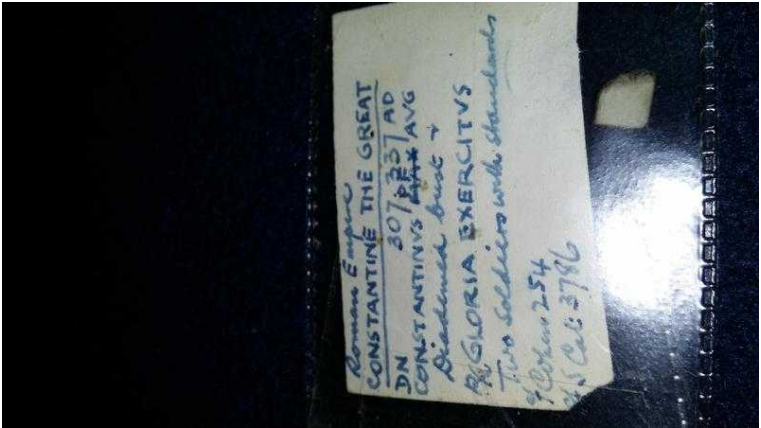 Roman Empire
CONSTANTINE THE GREAT
DN 307-337 AD
CONSTANTINVS PF AVG
Diademed bust
R/ GLORIA EXERCITVS
Two Soldiers with standards
Cohen 254
S Cat: 3786